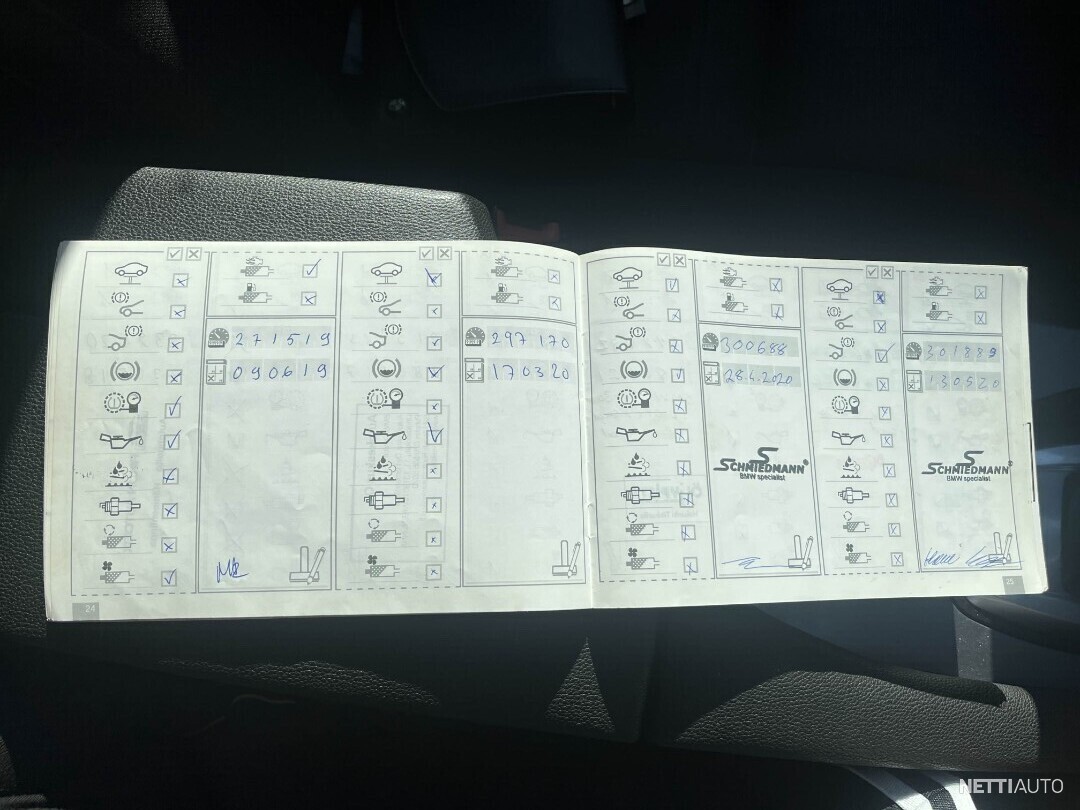 271519
090619
24
297170
170320
300688
28.4.2020
SCHMIEDMANN®
BMW specialist
301889
130520
SCHMIEDMANN®
BMW specialist
25
NETTIAUTO